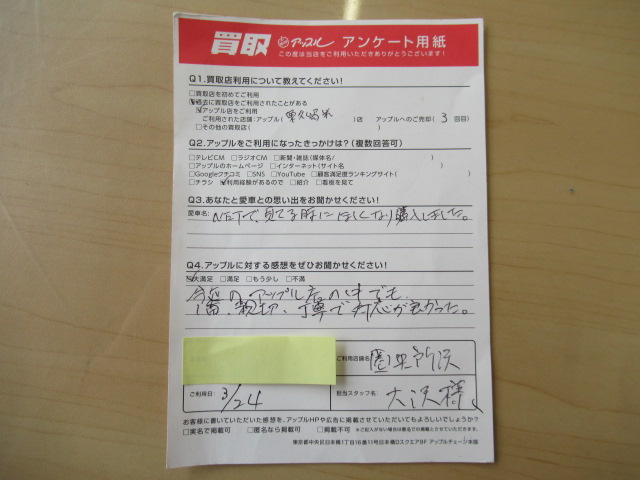 買取 アップル アンケート用紙
この度は当店をご利用いただきありがとうございます!
Q1.買取店利用について教えてください!
□買取店を初めてご利用
□過去に買取店をご利用されたことがある
□アップル店をご利用
ご利用された店舗:アップル( )店 アップルへのご売却( 3 回目)
□その他の買取店( )
Q2.アップルをご利用になったきっかけは?(複数回答可)
□テレビCM □ラジオCM □新聞・雑誌(媒体名/ )
□アップルのホームページ □インターネット(サイト名 )
□Googleクチコミ □SNS □YouTube □顧客満足度ランキングサイト( )
□チラシ □利用経験があるので □紹介 □看板を見て
Q3.あなたと愛車との思い出をお聞かせください!
愛車名: NETで、見てる時にほしくなり購入しました。
Q4.アップルに対する感想をぜひお聞かせください!
□大満足 □満足 □もう少し □不満
今迄のアップル店の中でも、
1番、親切、丁寧で対応が良かった。
ご利用店舗名 圏央所沢
ご利用日 3/24 担当スタッフ名: 大沢様
お客様に書いていただいた感想を、アップルHPや広告に掲載させていただいてもよろしいでしょうか?
□実名で掲載可 □匿名なら掲載可 □掲載不可 ※ご記入がない場合は匿名での掲載とさせていただきます。
東京都中央区日本橋1丁目16番11号日本橋Dスクエア8F アップルチェーン本部